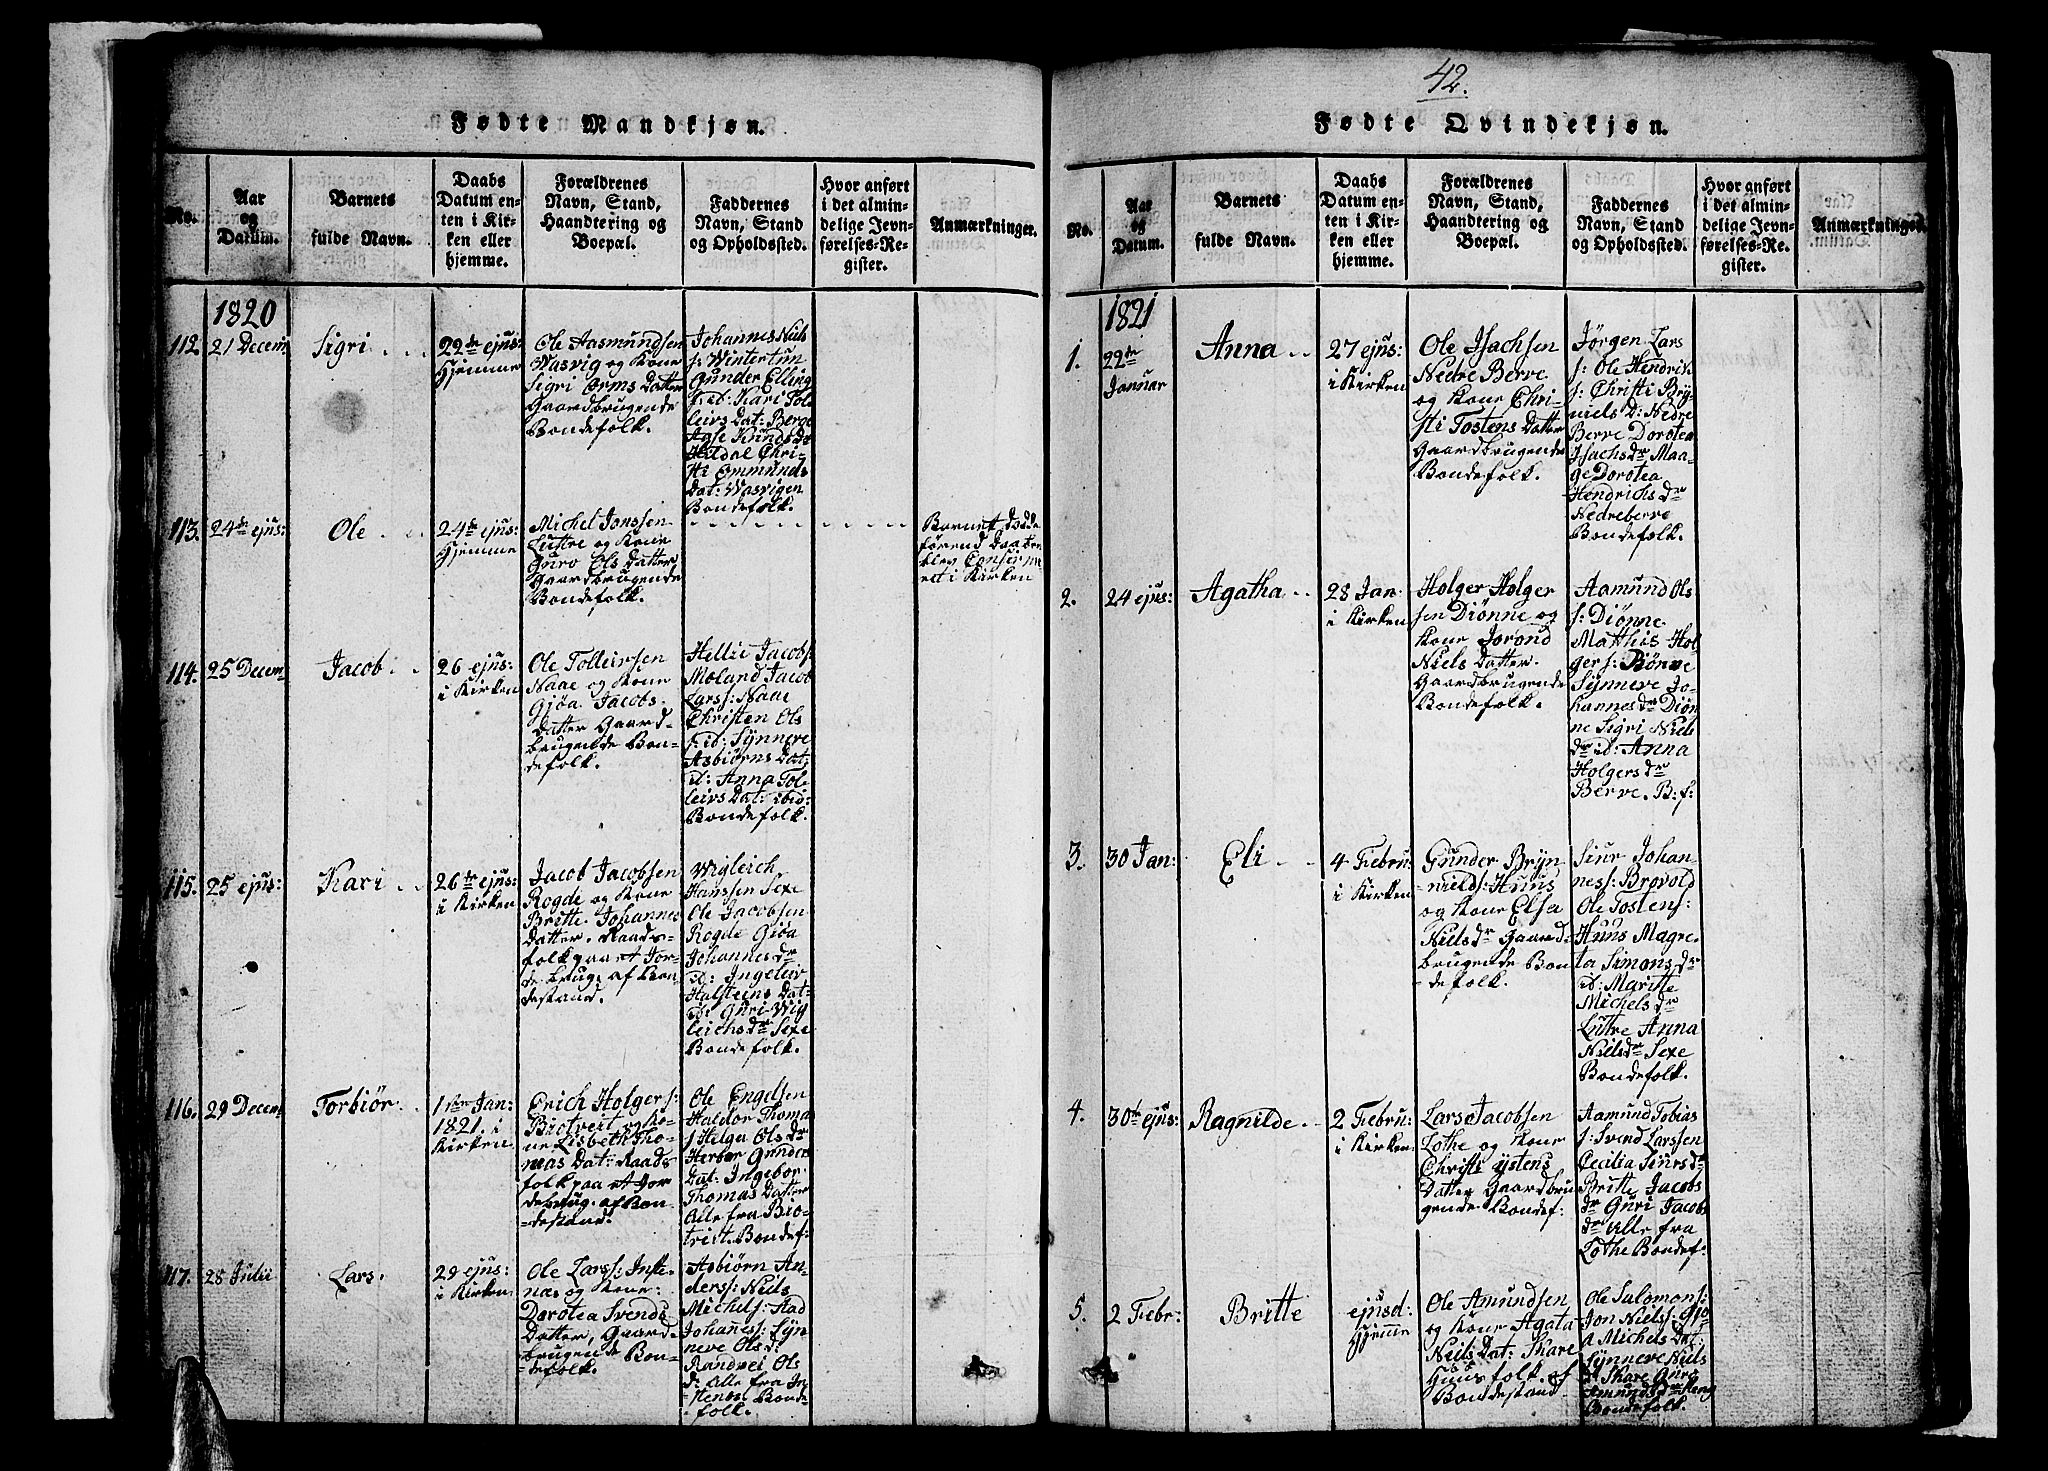 42.
Fødte Mandkjøn.
No.
Aar
og
Datum.
Barnets
fulde Navn.
Daabs
Datum en-
ten i Kir-
ken eller
hjemme.
Forældrenes
Navn, Stand,
Haandtering og
Boepæl.
Faddernes
Navn, Stand
og Opholdssted.
Hvor anført
i det almin-
delige Jevn-
førelses-Re-
gister.
Anmærkninger.
1820
112
21 Decem
Sigri
22de ejus:
Hjemme
Ole Aasmundsen
Wasvig og Kone
Sigri Orms Datter
Gaardbrugende
Bondefolk.
Johannes Niels
s: Wintertun
Gunder Elling
s: id: Kari Tol
leivs Dat: Berge
Aase Knuds D
Hildal Chri-
sti Emmunds
Dat: Wasvigen
Bondefolk.
113.
24de ejus:
Ole
24de ejus:
Hjemme
Michel Jonssen
Luttre og Kone
Guro Ols Datter
Gaardbrugende
Bondefolk.
Barnet
blev
i Kirken
114.
25 Decem
Jacob
26 ejus:
i Kirken
Ole Tolleivsen
Naae og Kone
Gjøa Jacobs
Datter Gaard-
brugende Bon-
defolk.
Hellie Jacobs
Moland Jacob
Larss: Naae
Christen Ols
s: id: Synneve
Asbiørns Dat
id: Anna Tol
leivs Dat: ibid:
Bondefolk.
115.
25 ejus:
Kari
26te ejus:
i Kirken
Jacob Jacobsen
Rogde og Kone
Britte Johannes
Datter. Raads-
folk paa et Jor-
debrug. af Bon-
destand.
Wigleich
Hanssen Sexe
Ole Jacobsen
Rogde Giøa
Johannes dr
id: Ingeleiv
Halsteins Dat-
id: Guri Wig
leichs dr Sexe
Bondefolk.
116.
29 Decem
Torbiør
1ste Jan:
1821. i
Kirken
Erich Holgers:
Biotveit og Ko-
ne Lisbeth Tho-
mas Dat: Raads
folk paa et Jor
debrug. af Bon
destand.
Ole Engelsen
Haldor Thoma
s Helga Ols dr
Herbor Gunders
Dat: Ingebor
Thomas Datter
Alle fra Bio-
treit. Bondef:
117.
28 Julii
Lars.
29 ejus:
i Kirken
Ole Larss: Inste-
næs og Kone:
Dorotea Svends
Datter, Gaard-
brugende Bon-
defolk.
Asbiørn An-
derss: Niels
Michels: Stad
Johaness: Syn-
neve Ols d:
Randvei Ols
d: Alle fra In-
stenes. Bonde
folk.
Fødte Qvindekjøn.
No.
Aar
og
Datum.
Barnets
fulde Navn.
Daabs
Datum en-
ten i Kir-
ken eller
hjemme.
Forældrenes
Navn, Stand,
Haandtering og
Boepæl.
Faddernes
Navn, Stand
og Opholdssted.
Hvor anført
i det almin-
delige Jevn-
førelses-Re-
gister.
Anmærkninger.
1821
1.
22de
Januar
Anna
27 ejus:
i Kirken
Ole Isachsen
Nedre Berve
og Kone Chri-
sti Tostens Datter
Gaardbrugende
Bondefolk.
Jørgen Lars
s: Ole Hendrik
s: Christi Bry-
niels D: Nedre
Berve Dorotea
Isachs dr Maa-
ge Dorotea
Hendrichs dr
Nedreberve
Bondefolk.
2.
24 ejus:
Agatha
28 Jan.
i Kirken
Holger Holger
sen Diønne og
Kone Jorond
Niels Datter.
Gaardbrugende
Bondefolk.
Aamund Ols
s: Diønne
Matthis Hol
gers: Diønne
Synneve Jo-
hannes dr Diøn
ne Sigri Niels
dr id: Anna
Holgers dr
Berve. B: f:
3.
30 Jan:
Eli
4 Febru
i Kirken
Gunder Bryn
nields: Huus
og Kone Elsa
Niels dr Gaard-
brugende Bon
defolk.
Siur Johan-
ness: Brovold
Ole Tostens:
Huus Magre-
ta Simons dr
id: Marite
Michels dr
Lutre Anna
Niels dr Sexe
Bondefolk.
4.
30te ejus:
Ragnilde
2 Febru:
i Kirken
Lars Jacobsen
Lothe og Kone
Christi Ystens
Datter Gaardbru
gende Bondef:
Aamund Tobias
s: Svend Larssen
Cecilia Siurs dr
Britte Jacobs
dr Guri Jacobs
dr Alle fra
Lothe Bondef:
5.
2 Febr:
Britte
ejusd:
Hjemme
Ole Amundsen
og Kone Agata
Niels Dat: Skare
Huusfolk. af
Bondestand
Ole Salomons:
Jon Niels: Gjø
a Michels Dat.
Synneve Niels
d Skare Guro
Amunds dr
Bondefolk.